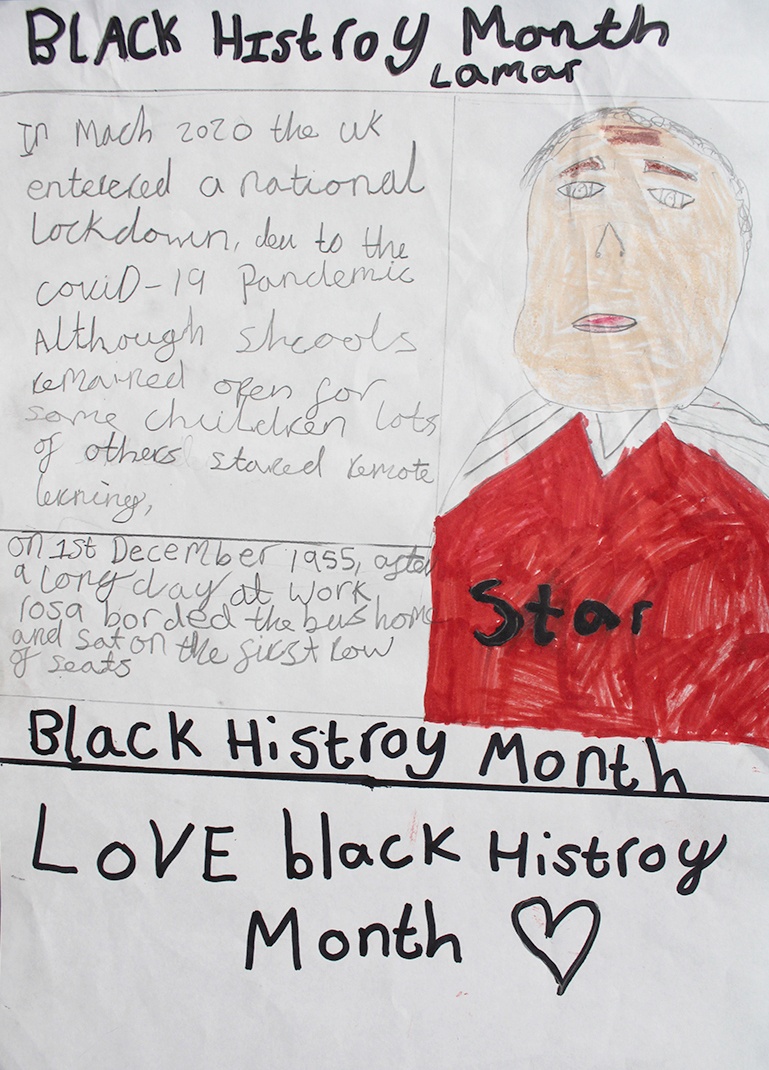 BLACK HIstroy Month
Lamar
In Mach 2020 the uk
enterered a national
lockdown, deu to the
couiD-19 Pandemic
Although shcools
remained open for
some chuildren lots
of others stared remote
lerning,
on 1st December 1955, after
a long day at work
rosa borded the bus home
and sat on the first row
of seats
Star
Black Histroy Month
LoVE black Histroy
Month